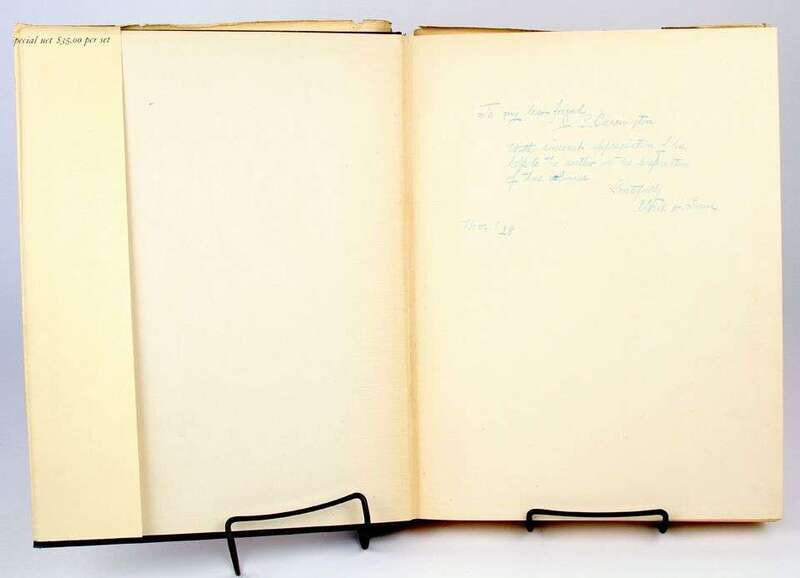 pecial net $35.00 per set
To my dear friend
Carrington
With sincere appreciation of his
help to the author in the
of these volumes
Gratefully
Nov. 28